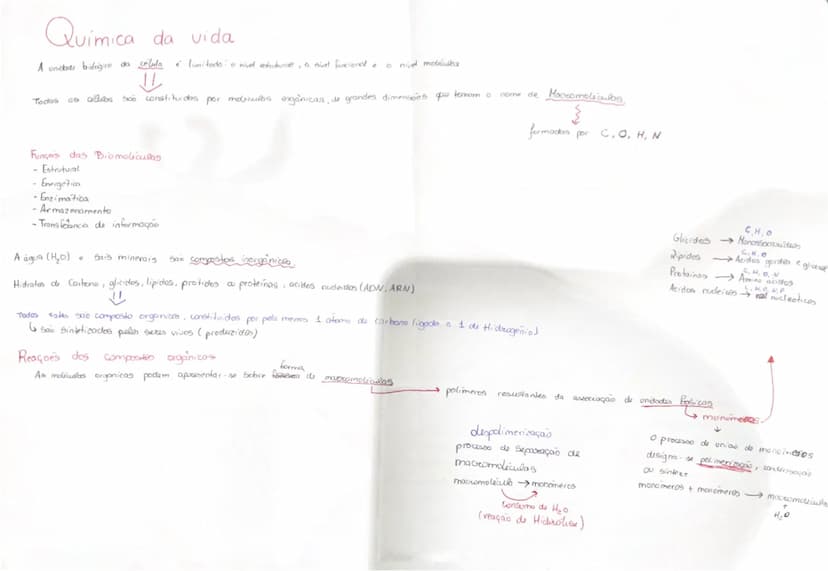 Química da vida
A unidade biológica da célula é limitada: o nível estrutural, o nível funcional e o nível molecular
Todas as células são constituídas por moléculas orgânicas, de grandes dimensões que tomam o nome de Macromoléculas
formadas por C, O, H, N
Funções das Biomoléculas
- Estrutural
- Energética
- Enzimática
- Armazenamento
- Transferência de informação
A água (H2O) e Sais minerais são compostos inorgânicos
Hidratos de Carbono, glícidos, lípidos, prótidos ou proteínas, ácidos nucleicos (ADN, ARN)
Todos estes são composto orgânicos, constituídos por pelo menos 1 átomo de carbono ligado a 1 de Hidrogénio
↳ São sintetizados pelos seres vivos (produzidos)
C, H, O
Glícidos → Monossacarídeos
C, H, O
Lípidos → Ácidos gordos e
C, H, O, N
Proteínas → Amino ácidos
C, H, O, N, P
Ácidos nucleicos → nucleótidos
Reações dos compostos orgânicos
As moléculas orgânicas podem apresentar-se sobre forma de macromoléculas
→ polímeros resultantes da associação de unidades básicas
↳ monómeros
O processo de união de monómeros
designa-se polimerização, condensação
ou síntese
monómeros + monómeros → macromolécula
+
H2O
despolimerização
processo de separação de
macromoléculas
macromolécula → monómeros
consumo de H2O
(reação de Hidrólise)